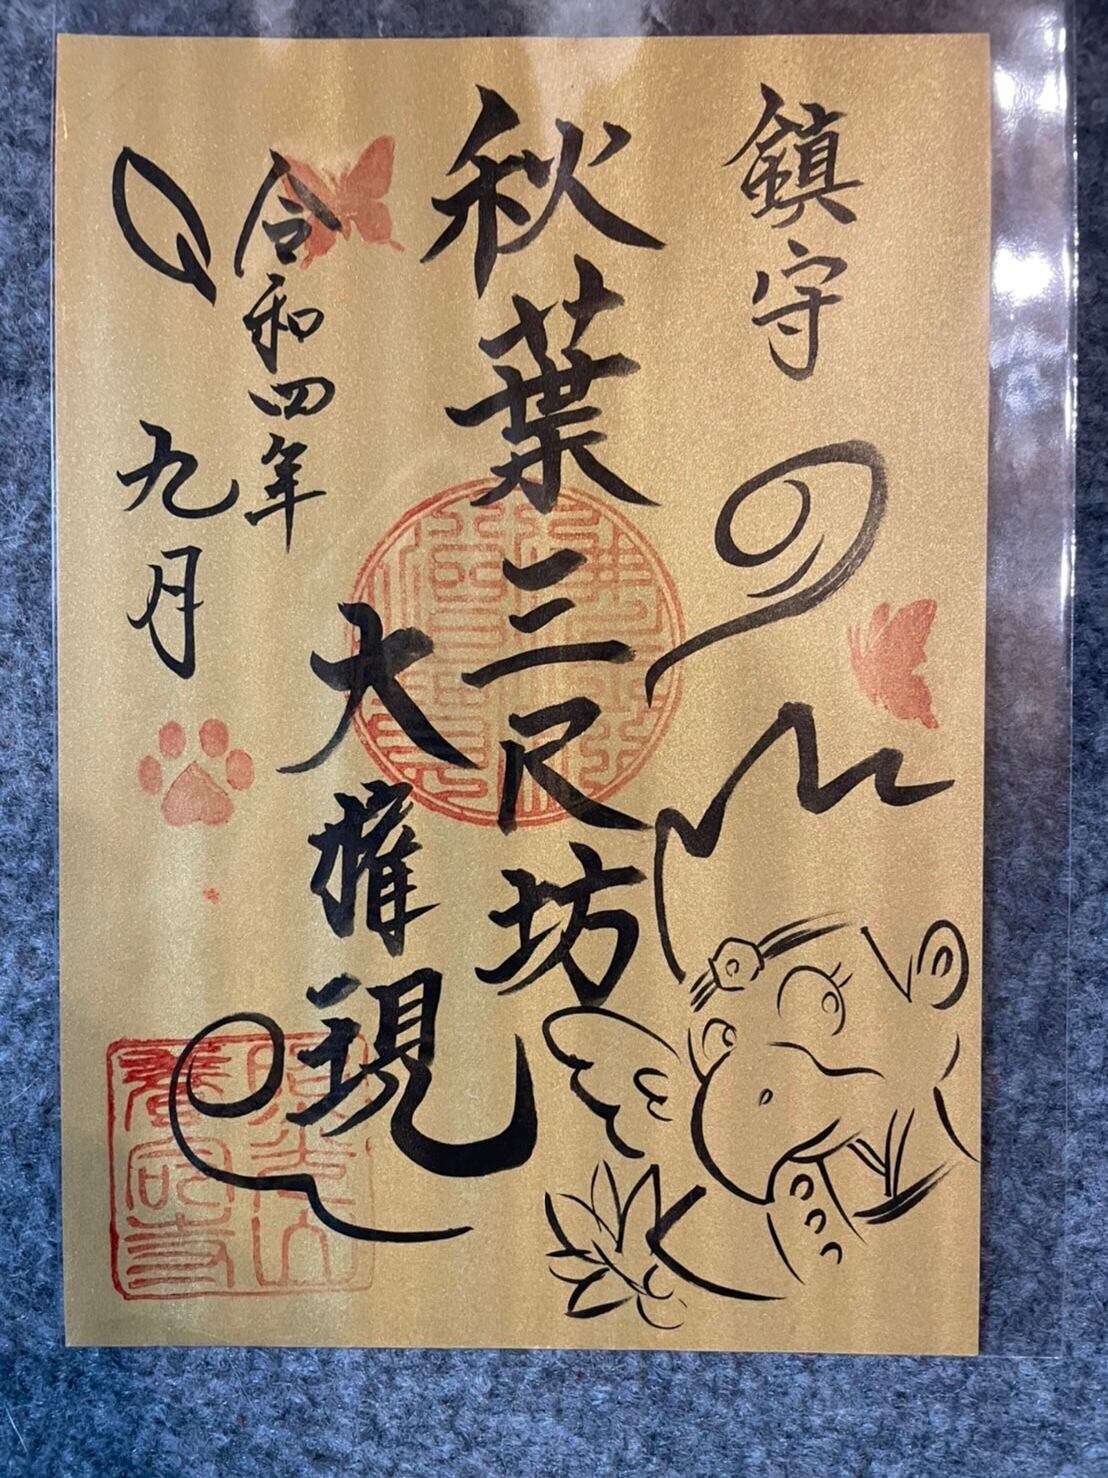 鎮守
秋葉三尺坊
大権現
令和四年
九月